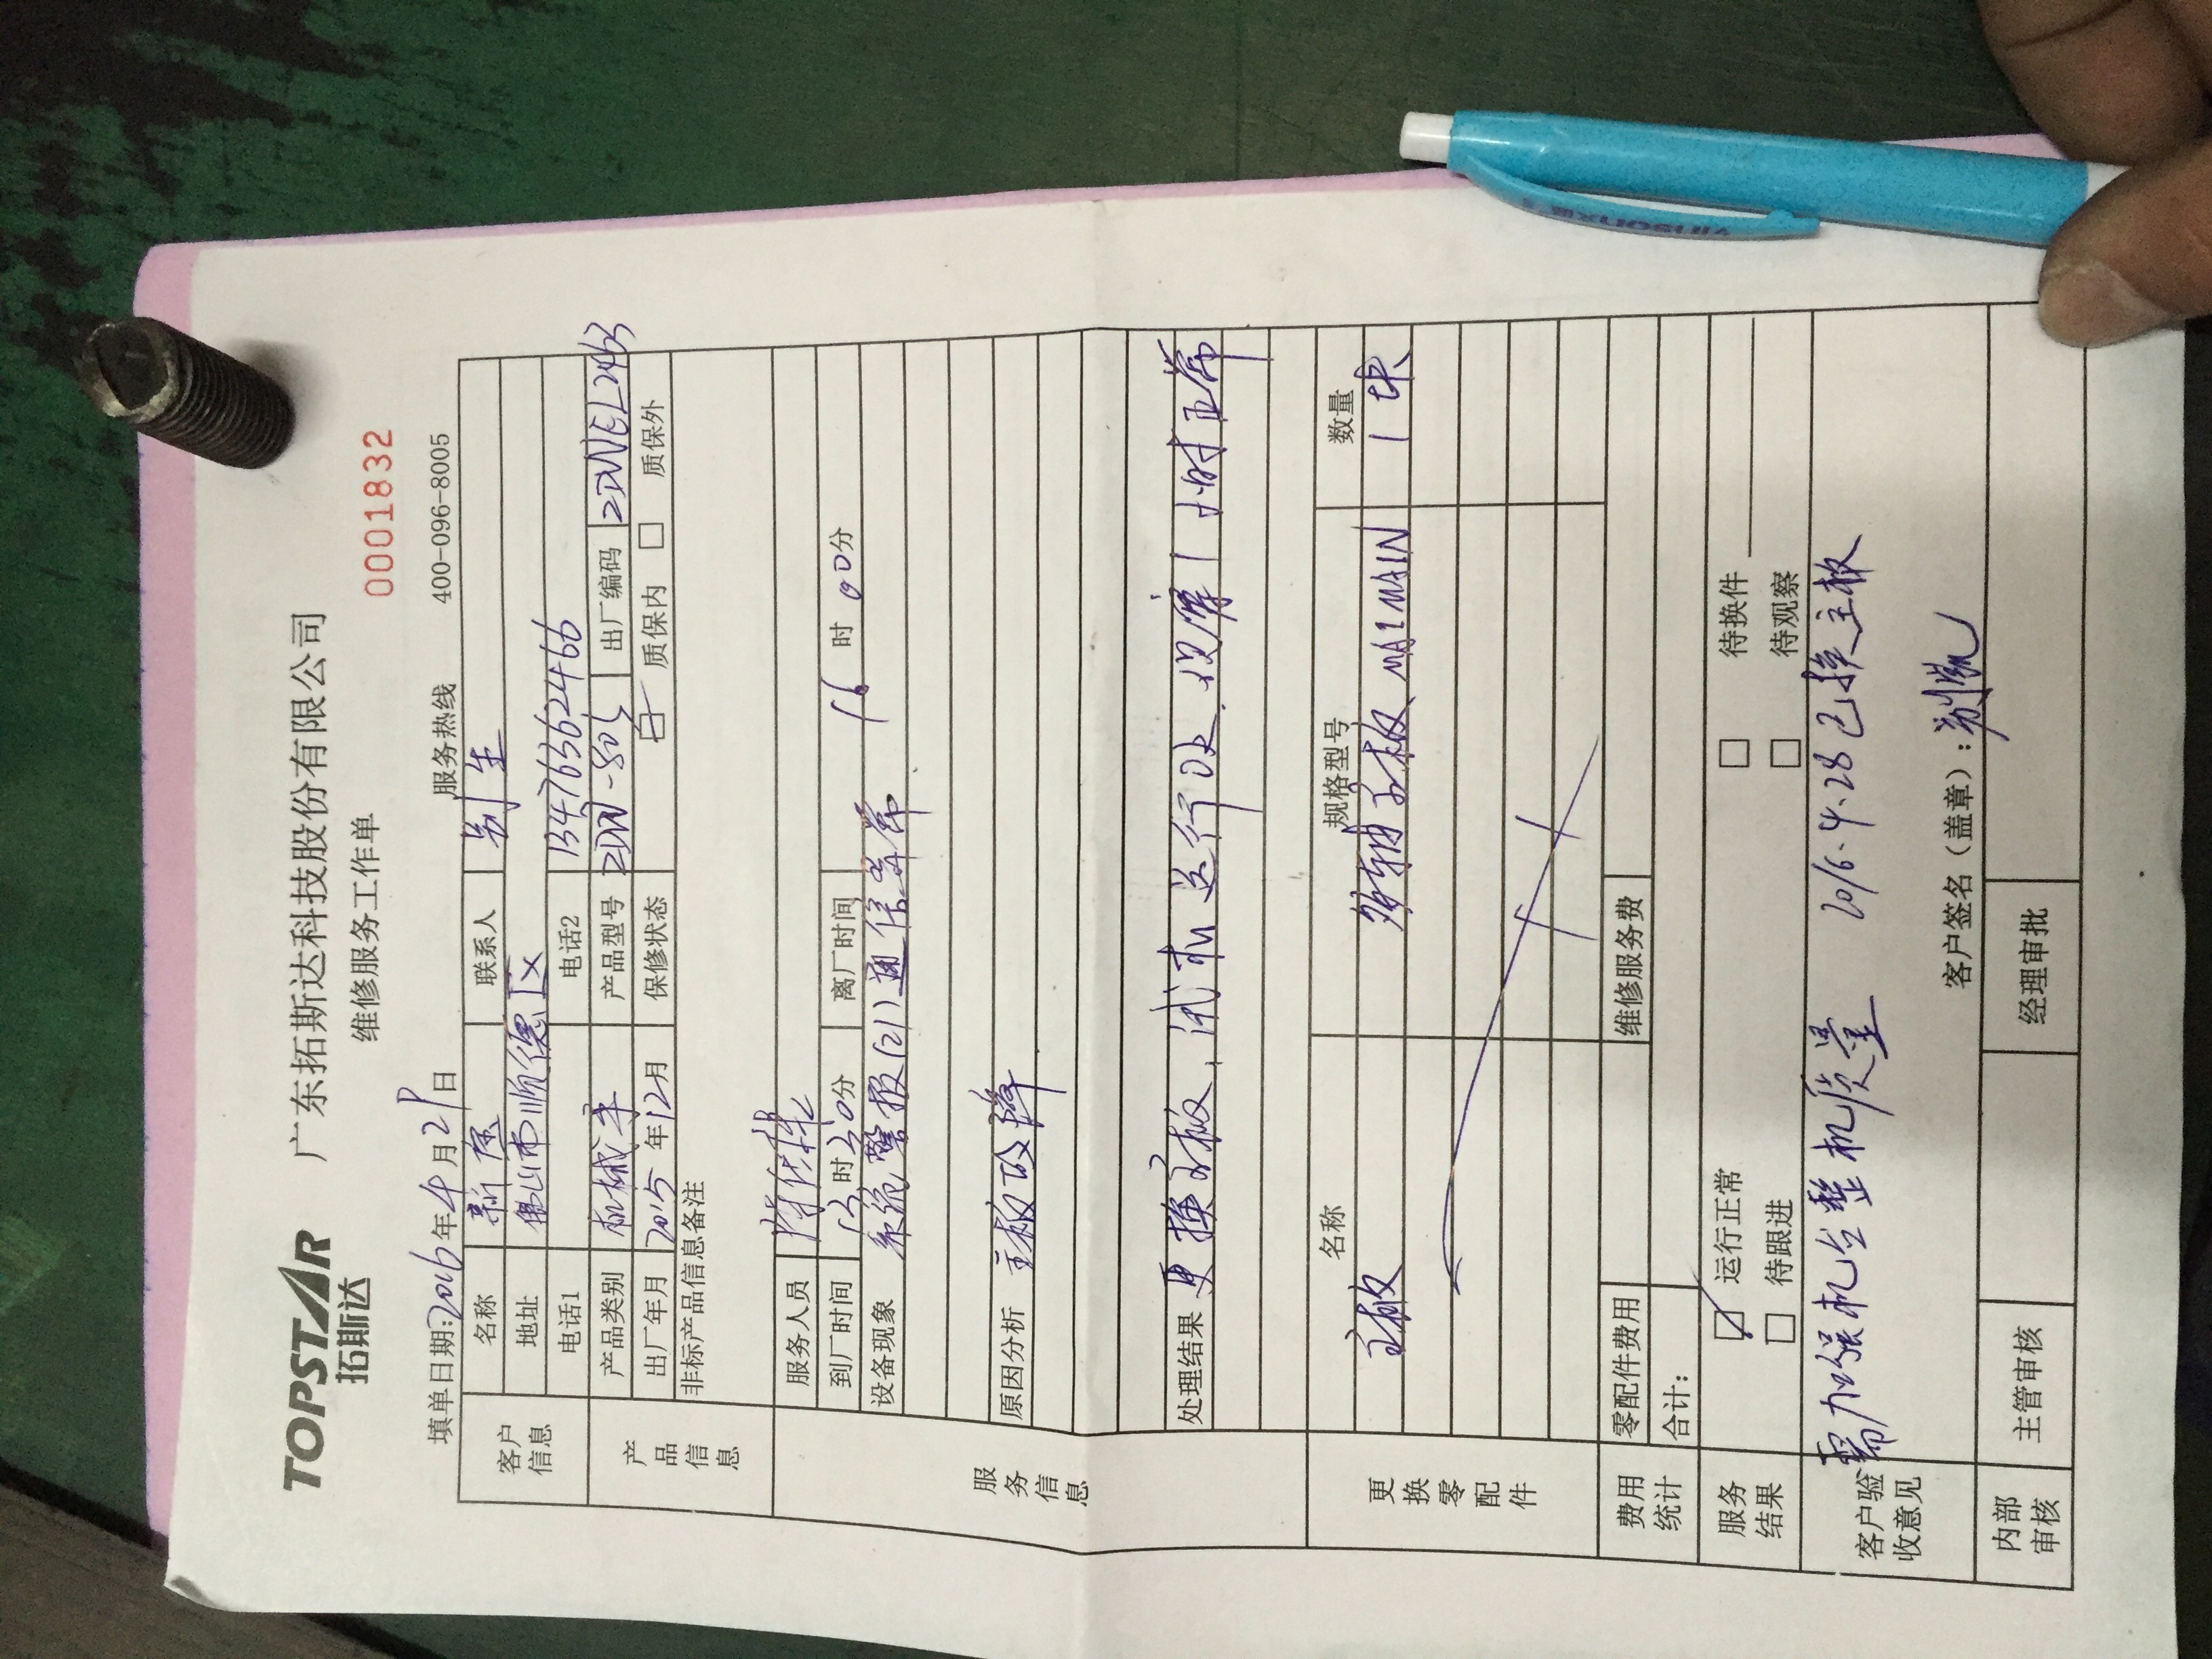 TOPSTAR 广东拓斯达科技股份有限公司
拓斯达 维修服务工作单
0001832
填单日期:2016年4月29日 服务热线 400-096-8005
客户信息
名称 联系人 别生
地址 佛山市顺德区
电话1 电话2 13476362466
产品信息
产品类别 机械手 产品型号 出厂编码
出厂年月 2015年12月 保修状态 质保内 □ 质保外
非标产品信息备注
服务信息
服务人员
到厂时间 13时30分 离厂时间 16时00分
设备现象 系统警报(21)通信异常
原因分析 主板故障
处理结果 更换主板,试机运行OK.观察1小时正常
更换零配件
名称 规格型号 数量
主板 多轴主板 MA1MAIN 1块
费用统计
零配件费用 维修服务费
合计:
服务结果
☑ 运行正常 □ 待换件
□ 待跟进 □ 待观察
客户验收意见
需加强机台整机质量 2016.4.28已换主板
客户签名(盖章):
内部审核
主管审核 经理审批